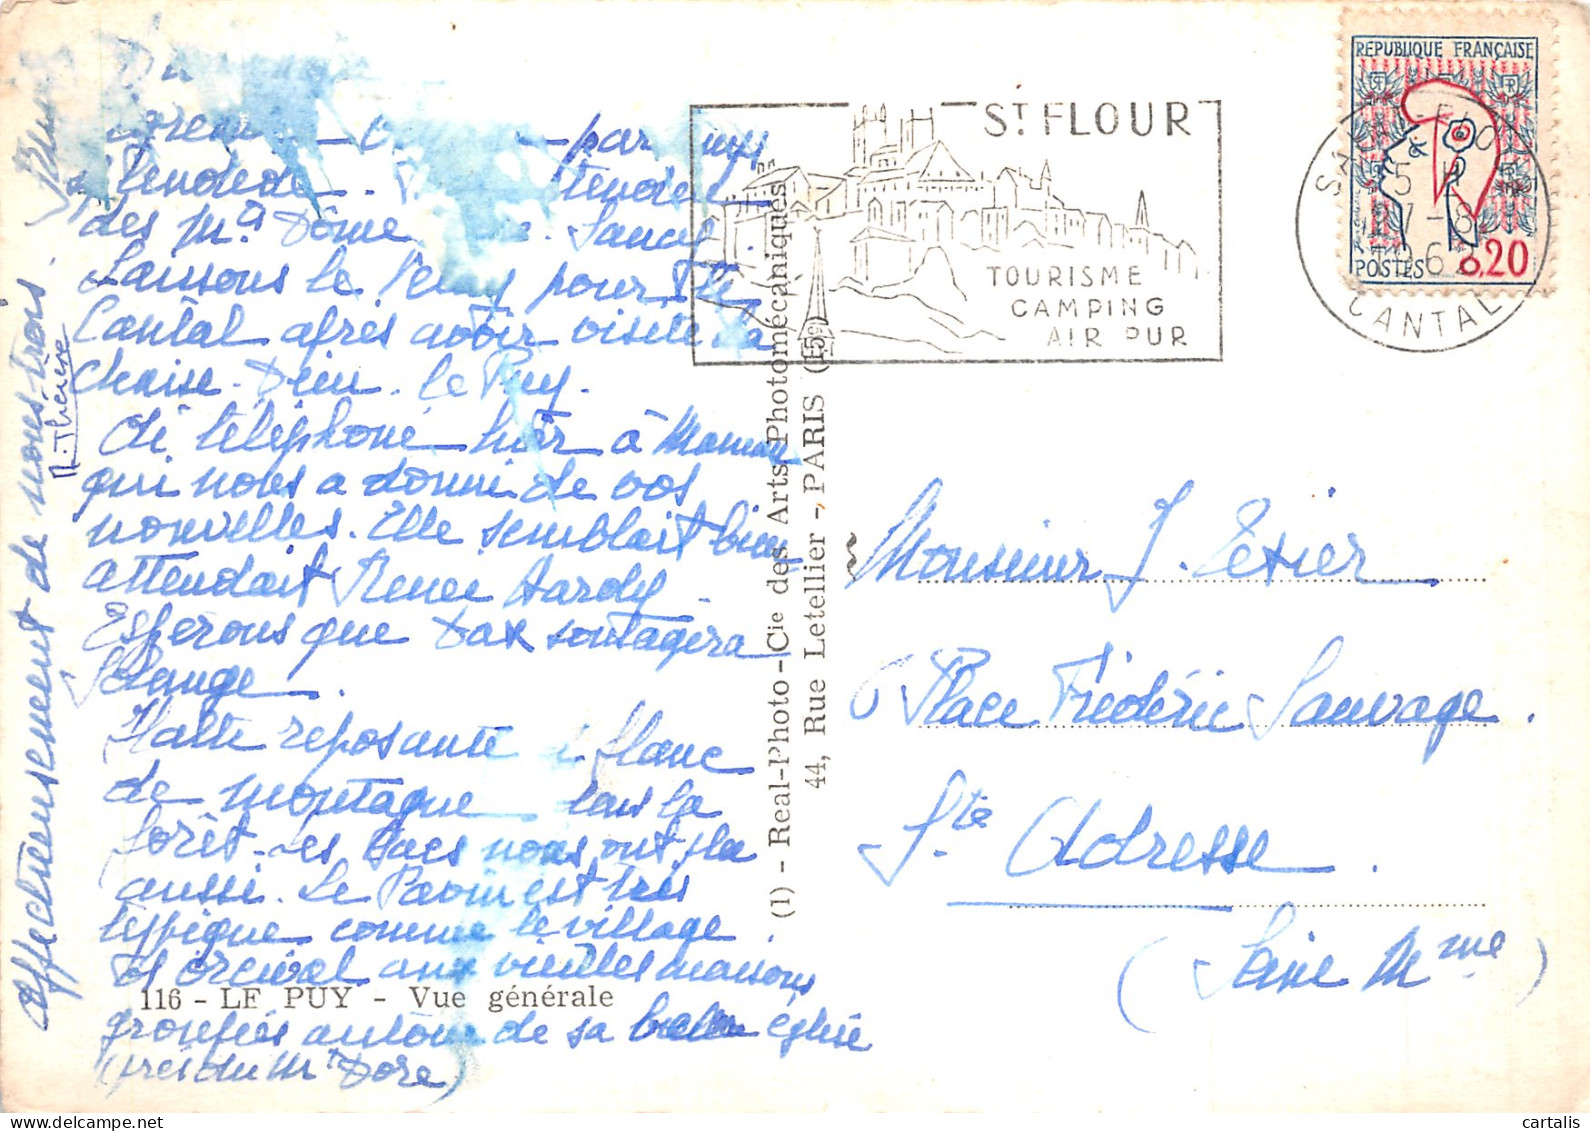 pays
splendide.
des Mts Dôme Sancy
Laissons le Puy pour le
Cantal après avoir visité la
Chaise-Dieu. Le Puy.
Ai téléphoné hier à Maman
qui nous a donné de vos
nouvelles. Elle semblait bien,
attendait Renée Hardy.
Espérons que Dax soulagera
Solange.
Halte reposante à flanc
de montagne dans la
forêt. Les lacs nous ont plu
aussi. Le Pavin est très
typique comme le village
d'Orcival aux vieilles maisons
116 - LE PUY - Vue générale
groupées autour de sa belle église
(près du Mt Dore)
affectueusement de nous trois.
M. Thérèse
(1) - Real-Photo-Cie des Arts Photomécaniques
44, Rue Letellier - PARIS (15e)
ST FLOUR
TOURISME
CAMPING
AIR PUR
RÉPUBLIQUE FRANÇAISE
POSTES 0.20
CANTAL
Monsieur J. Texier
6 Place Frédéric Sauvage.
Ste Adresse.
(Seine Mme)